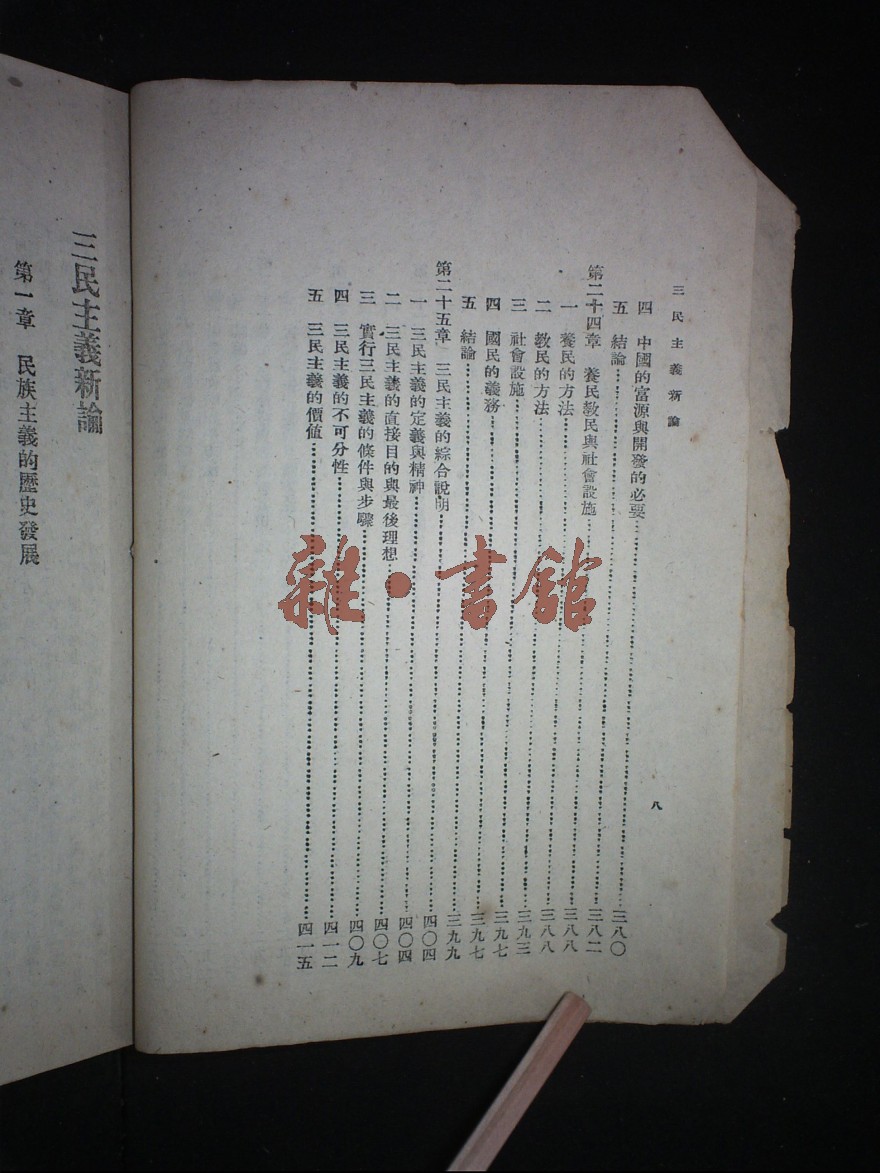 三民主義新論
八
四 中國的富源與開發的必要……三八〇
五 結論……三八二
第二十四章 養民教民與社會設施……三八八
一 養民的方法……三八八
二 教民的方法……三九三
三 社會設施……三九七
四 國民的義務……三九七
五 結論……三九九
第二十五章 三民主義的綜合說明……四〇四
一 三民主義的定義與精神……四〇四
二 三民主義的直接目的與最後理想……四〇七
三 實行三民主義的條件與步驟……四〇九
四 三民主義的不可分性……四一二
五 三民主義的價值……四一五
三民主義新論
第一章 民族主義的歷史發展
雜·書館